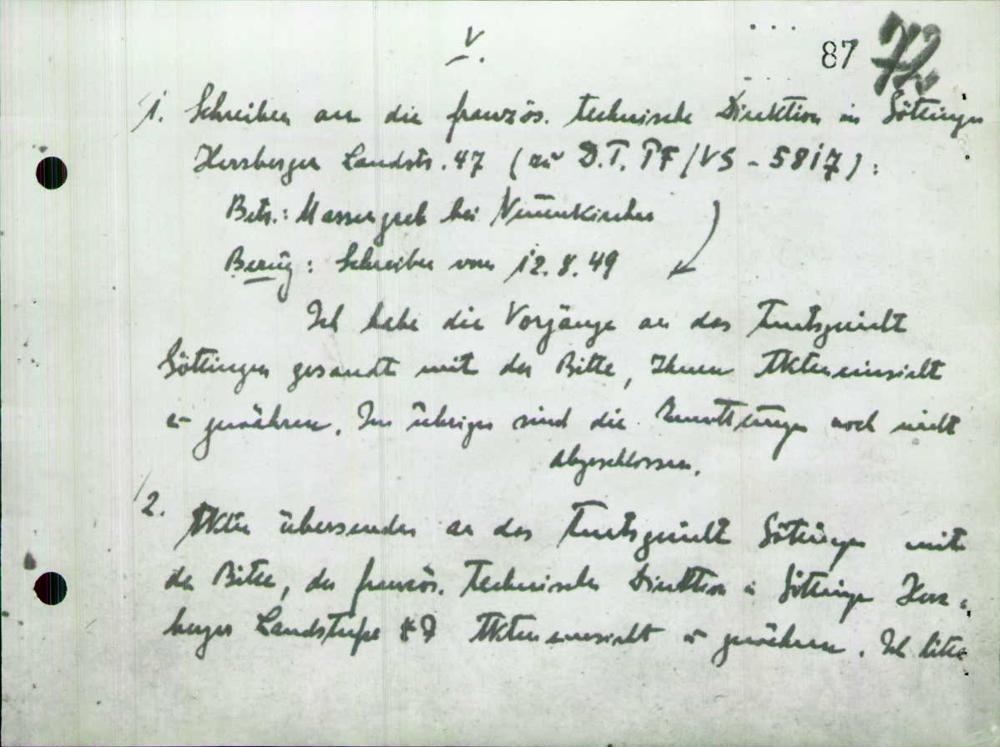 V.
87 72
1. Schreiben an die französ. technische Direktion in Göttingen
Herzberger Landstr. 47 (zu D.T. PF/VS - 5817):
Betr.: Massengrab bei
Bezug: Schreiben vom 12.8.49
Ich habe die Vorgänge an das Amtsgericht
Göttingen gesandt mit der Bitte, Ihnen Akteneinsicht
zu gewähren. Im übrigen sind die Ermittlungen noch nicht
abgeschlossen.
2. Akten übersenden an das Amtsgericht Göttingen mit
der Bitte, der französ. Technischen Direktion in Göttingen Herz-
berger Landstraße 47 Akteneinsicht zu gewähren. Ich bitte